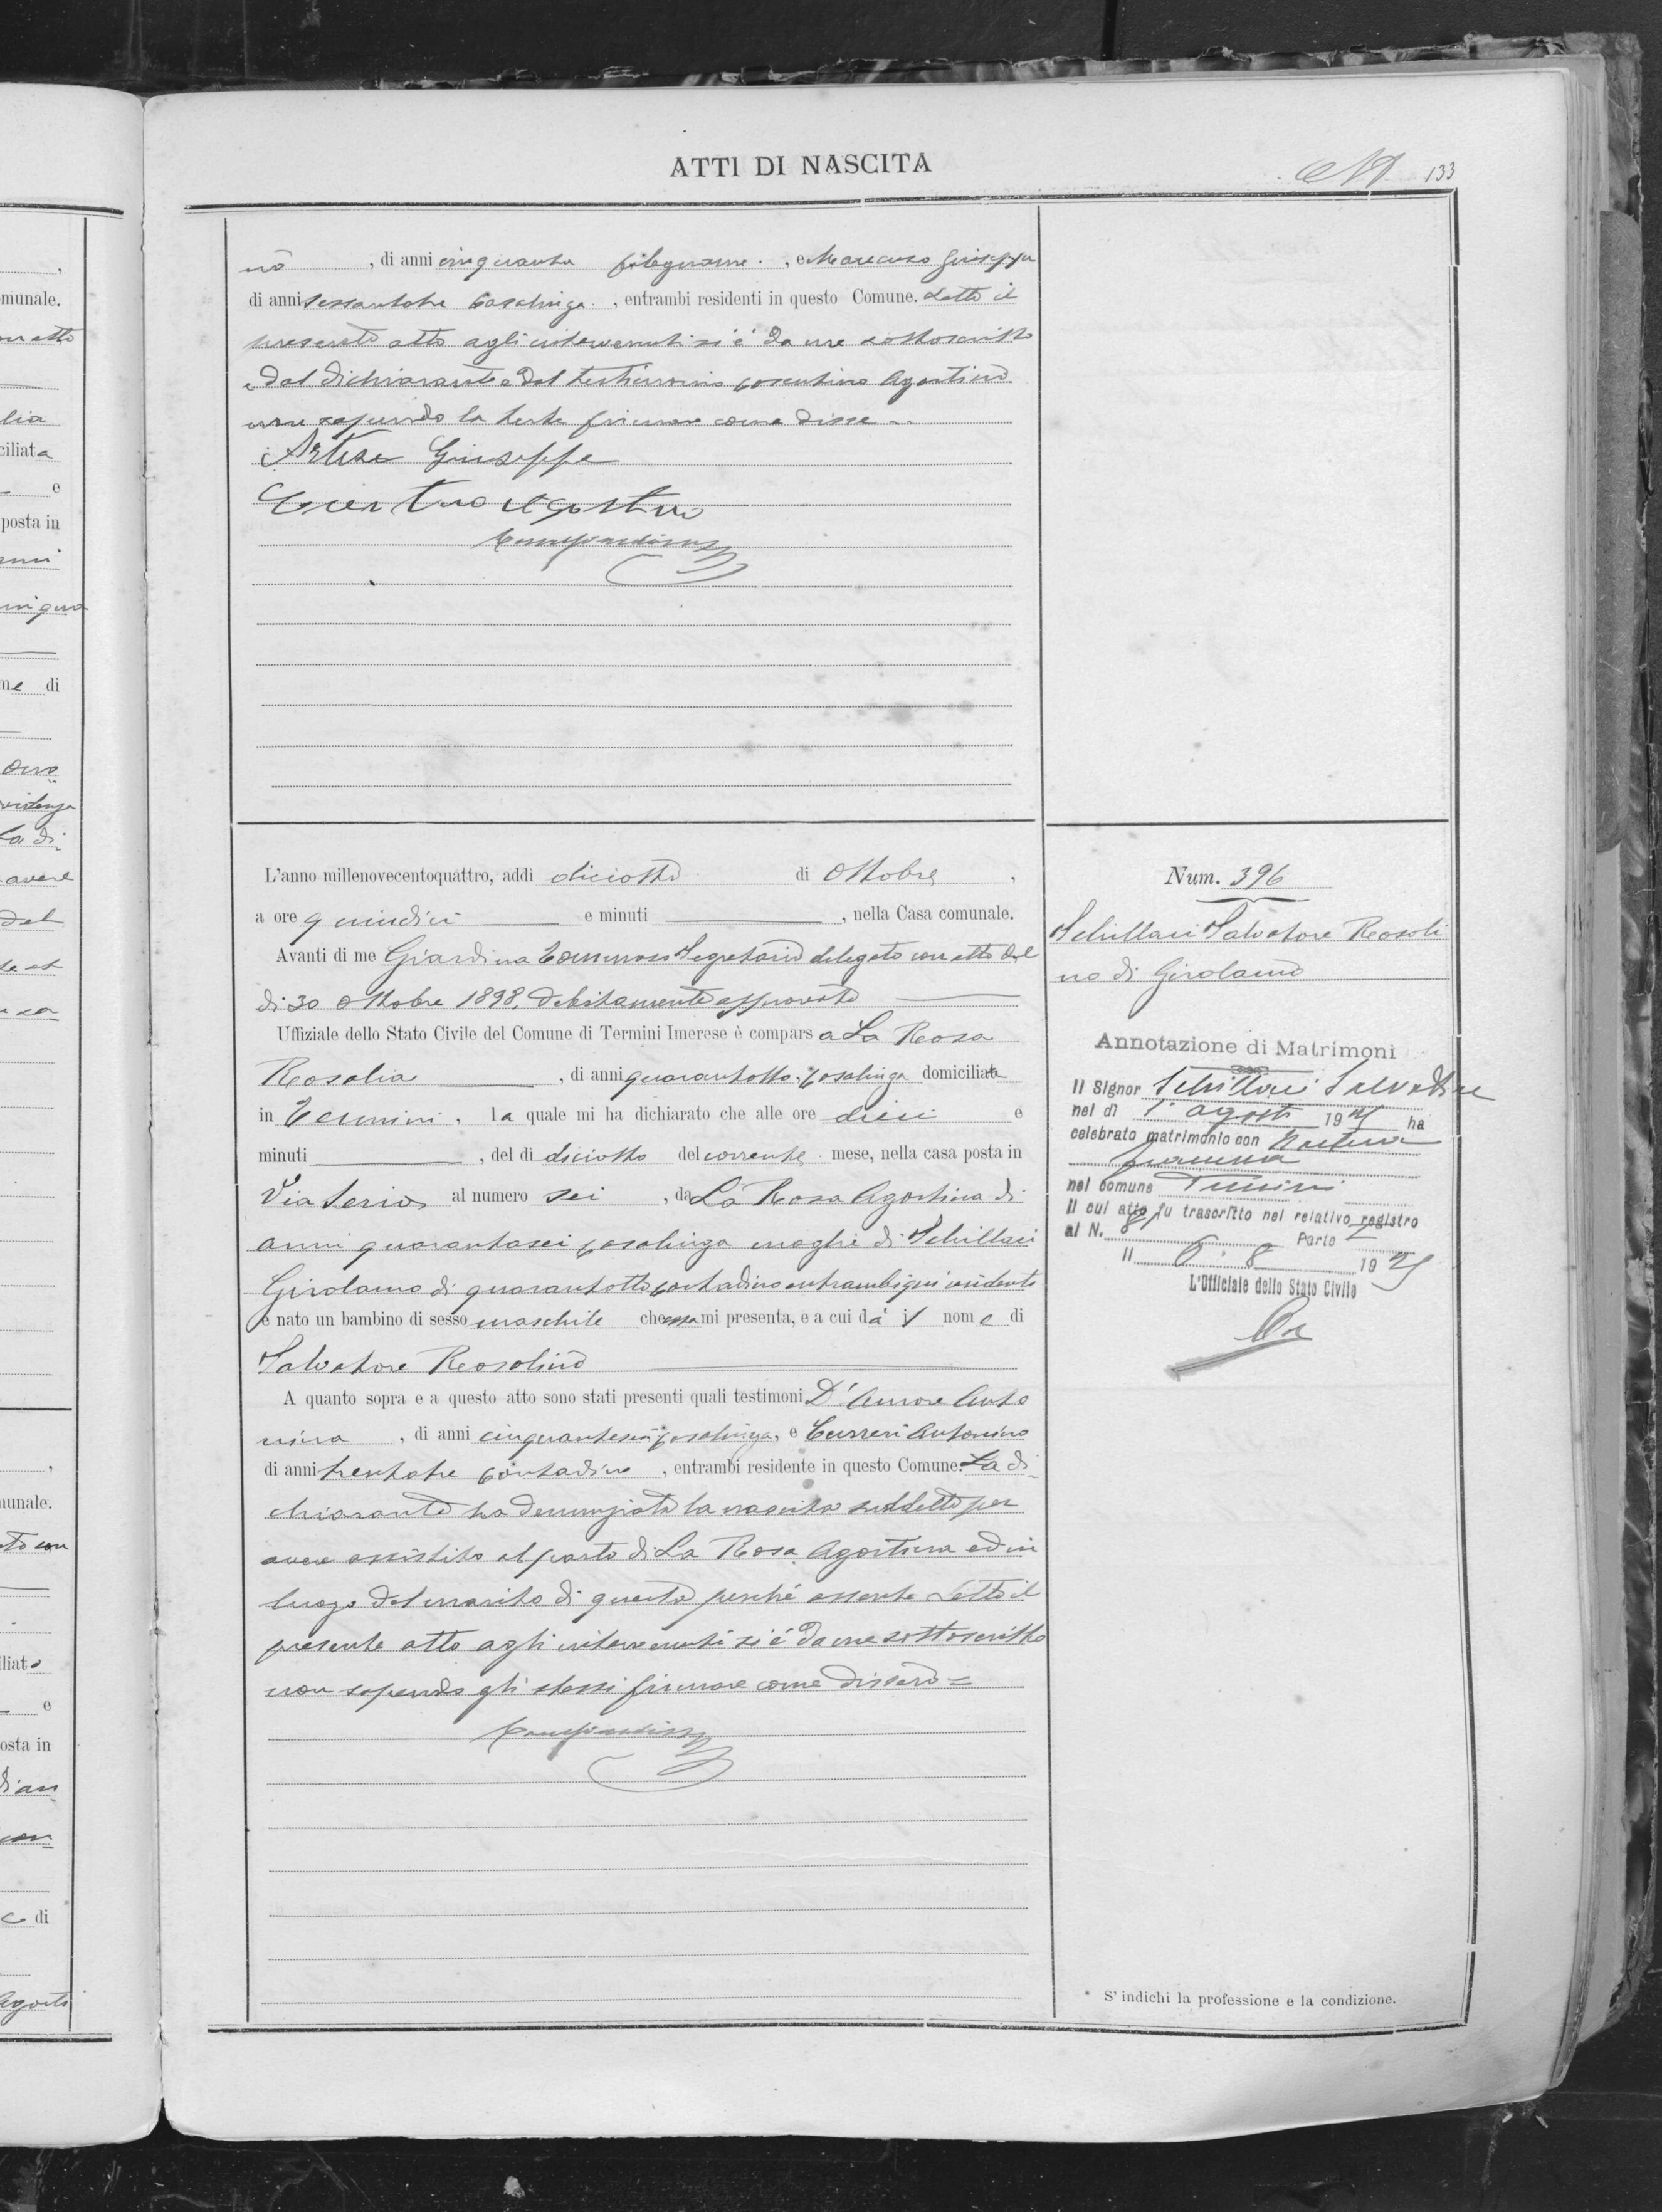 ATTI DI NASCITA
133
no, di anni cinquanta falegname, e Mancuso Giuseppa
di anni sessantatre casalinga, entrambi residenti in questo Comune. Letto il
presente atto agli intervenuti si è da me sottoscritto
e dal dichiarante e dal testimonio Cosentino Agostino
non sapendo la teste firmare come disse
Artese Giuseppe
Agostino
L'anno millenovecentoquattro, addi diciotto di Ottobre,
a ore quindici e minuti, nella Casa comunale.
Avanti di me Giardina Tommaso Segretario delegato con atto del
di 30 Ottobre 1898, debitamente approvato
Uffiziale dello Stato Civile del Comune di Termini Imerese è comparsa La Rosa
Rosalia, di anni quarantotto, casalinga domiciliata
in Termini, la quale mi ha dichiarato che alle ore dieci e
minuti, del di diciotto del corrente mese, nella casa posta in
Via Serio al numero sei, da La Rosa Agostina di
anni quarantasei casalinga moglie di Schillaci
Girolamo di quarantotto contadino entrambi qui residenti
è nato un bambino di sesso maschile che essa mi presenta, e a cui dà il nome di
Salvatore Rosolino
A quanto sopra e a questo atto sono stati presenti quali testimoni D'Amore Anto
nina, di anni cinquantasei casalinga, e Curreri Antonino
di anni trentatre contadino, entrambi residente in questo Comune. La di-
chiarante ha denunziato la nascita suddetta per
avere assistito al parto di La Rosa Agostina ed in
luogo del marito di questa perché assente Letto il
presente atto agli intervenuti si è da me sottoscritto
non sapendo gli stessi firmare come dissero =
Num. 396
Schillaci Salvatore Rosoli
no di Girolamo
Annotazione di Matrimoni
Il Signor Schillaci Salvatore
nel dì 1° agosto 19 ha
celebrato matrimonio con
nel comune Termini
Il cui atto fu trascritto nel relativo registro
al N. 81 Parte
Il 6 8 19
L'Ufficiale dello Stato Civile
* S'indichi la professione e la condizione.
munale.
lia
ciliata
e
posta in
me di
avere
del
munale.
e
osta in
di